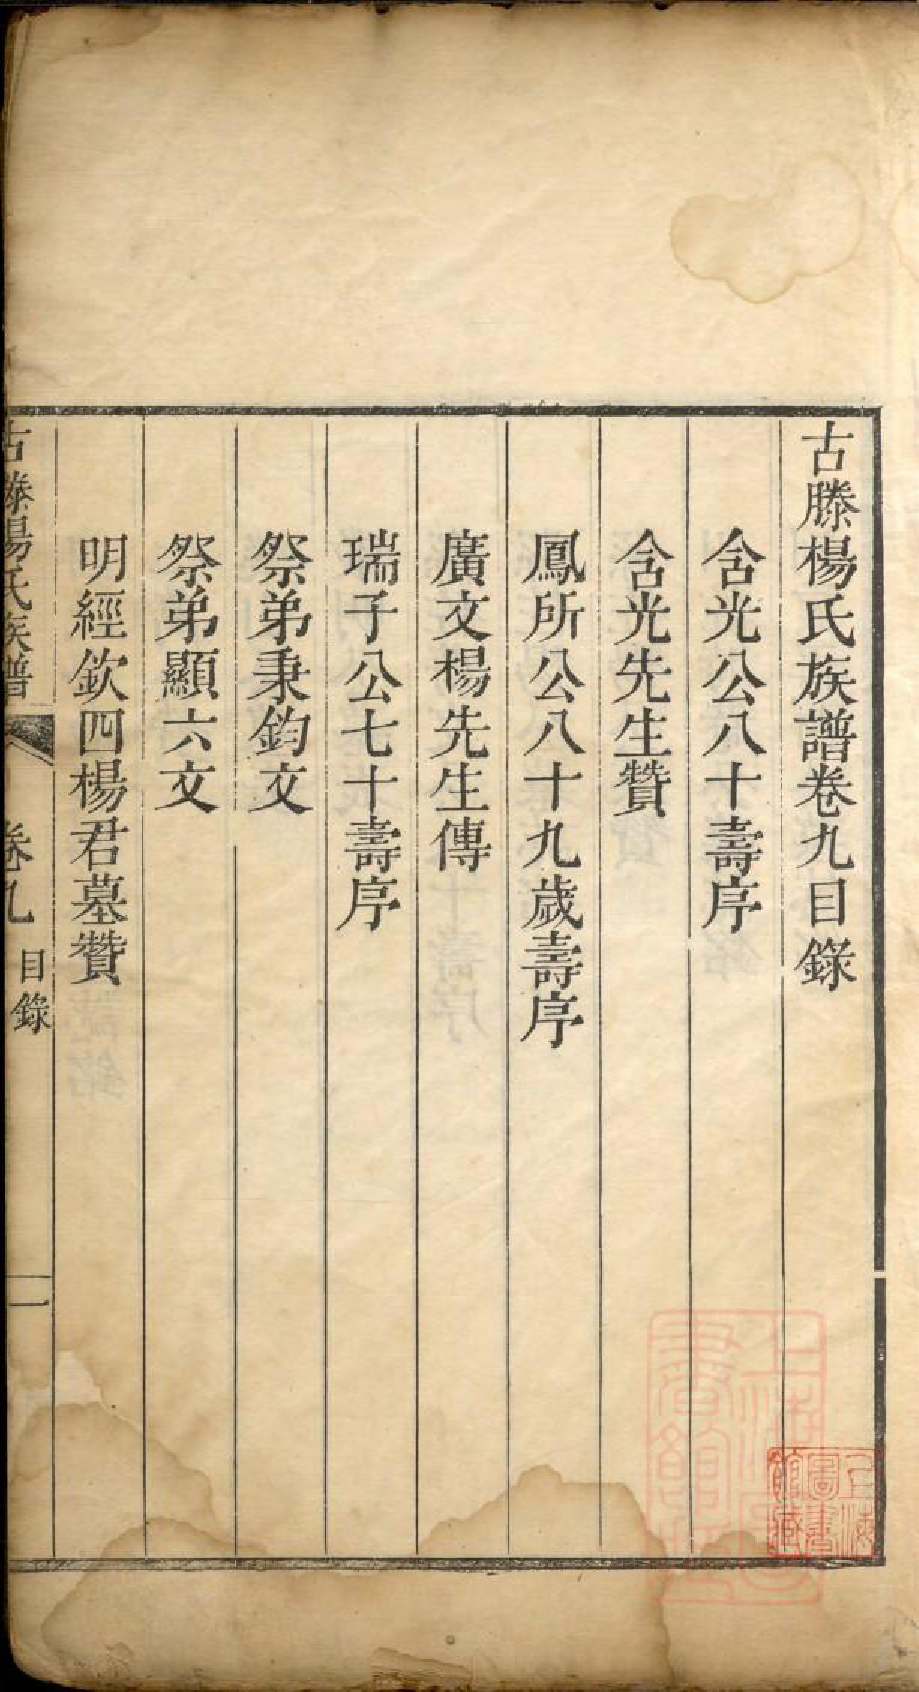 古滕楊氏族譜卷九目錄
含光公八十壽序
含光先生贊
鳳所公八十九歲壽序
廣文楊先生傳
瑞子公七十壽序
祭弟秉鈞文
祭弟顯六文
明經欽四楊君墓贊
古滕楊氏族譜 卷九 目錄 一
上海圖書館藏